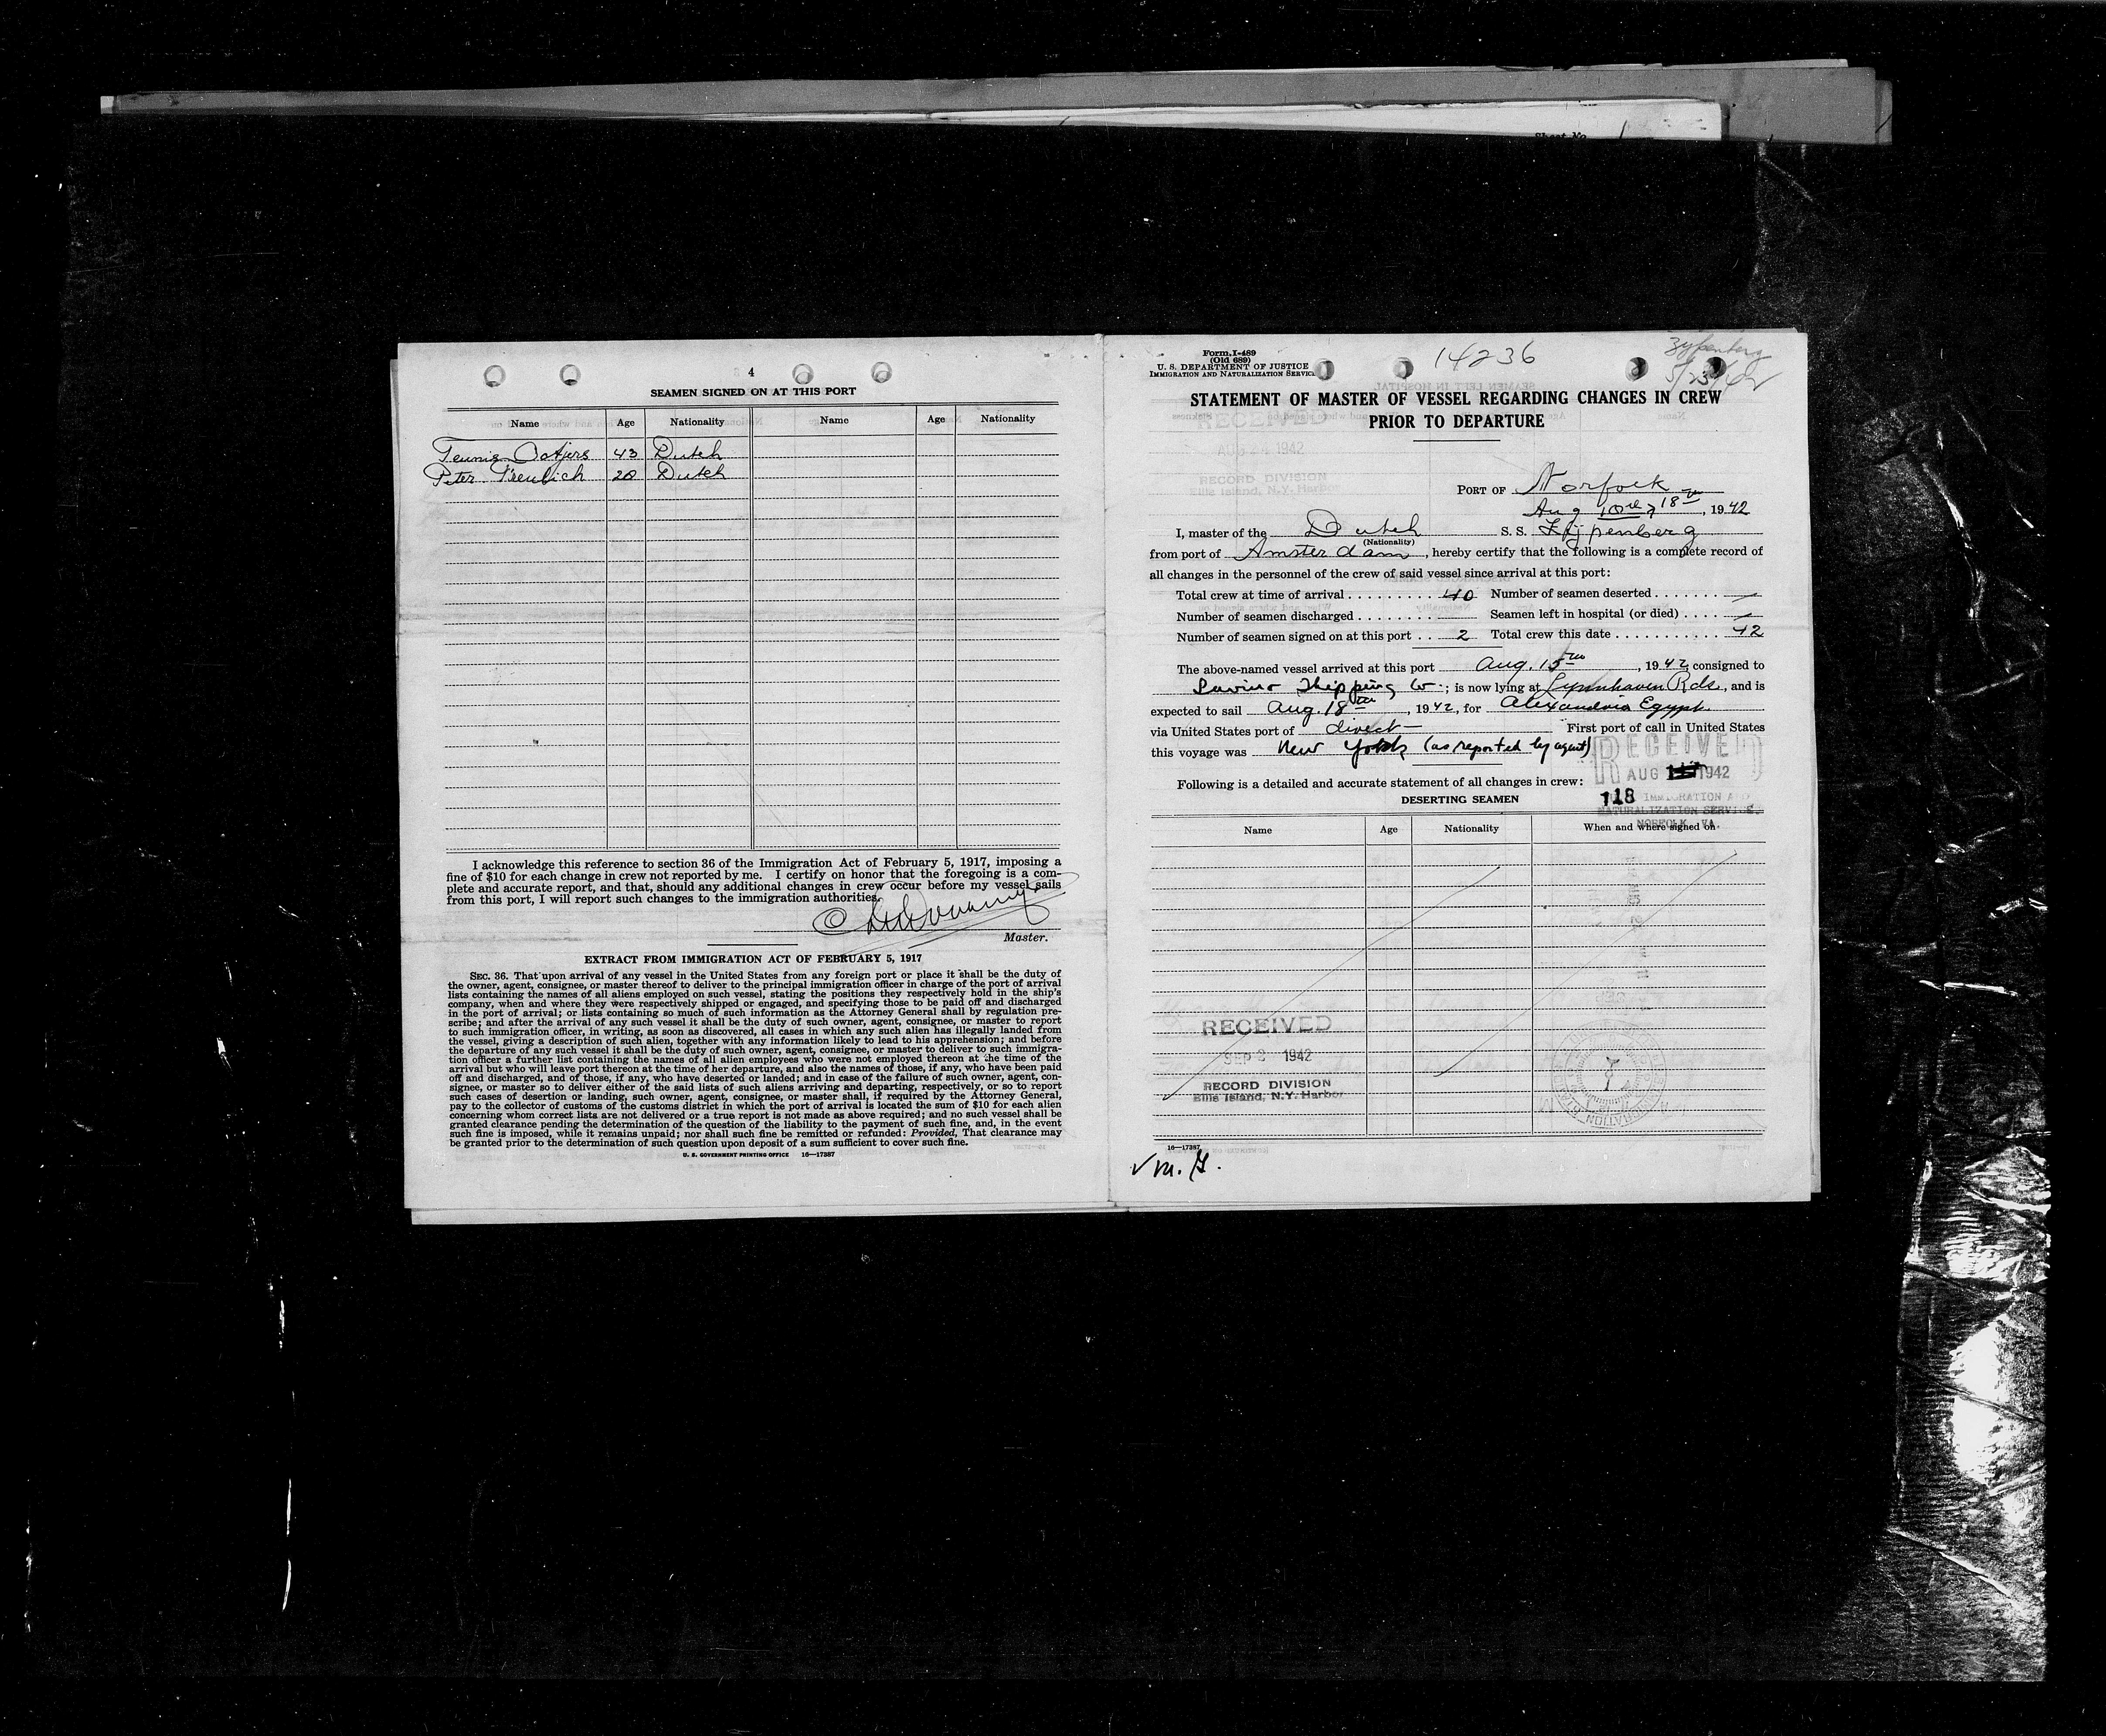 Sheet No. 1
4
SEAMEN SIGNED ON AT THIS PORT
Name Age Nationality Name Age Nationality
Teunis 43 Dutch
Peter 28 Dutch
I acknowledge this reference to section 36 of the Immigration Act of February 5, 1917, imposing a
fine of $10 for each change in crew not reported by me. I certify on honor that the foregoing is a com-
plete and accurate report, and that, should any additional changes in crew occur before my vessel sails
from this port, I will report such changes to the immigration authorities.
Master.
EXTRACT FROM IMMIGRATION ACT OF FEBRUARY 5, 1917
SEC. 36. That upon arrival of any vessel in the United States from any foreign port or place it shall be the duty of
the owner, agent, consignee, or master thereof to deliver to the principal immigration officer in charge of the port of arrival
lists containing the names of all aliens employed on such vessel, stating the positions they respectively hold in the ship's
company, when and where they were respectively shipped or engaged, and specifying those to be paid off and discharged
in the port of arrival; or lists containing so much of such information as the Attorney General shall by regulation pre-
scribe; and after the arrival of any such vessel it shall be the duty of such owner, agent, consignee, or master to report
to such immigration officer, in writing, as soon as discovered, all cases in which any such alien has illegally landed from
the vessel, giving a description of such alien, together with any information likely to lead to his apprehension; and before
the departure of any such vessel it shall be the duty of such owner, agent, consignee, or master to deliver to such immigra-
tion officer a further list containing the names of all alien employees who were not employed thereon at the time of the
arrival but who will leave port thereon at the time of her departure, and also the names of those, if any, who have been paid
off and discharged, and of those, if any, who have deserted or landed; and in case of the failure of such owner, agent, con-
signee, or master so to deliver either of the said lists of such aliens arriving and departing, respectively, or so to report
such cases of desertion or landing, such owner, agent, consignee, or master shall, if required by the Attorney General,
pay to the collector of customs of the customs district in which the port of arrival is located the sum of $10 for each alien
concerning whom correct lists are not delivered or a true report is not made as above required; and no such vessel shall be
granted clearance pending the determination of the question of the liability to the payment of such fine, and, in the event
such fine is imposed, while it remains unpaid; nor shall such fine be remitted or refunded: Provided, That clearance may
be granted prior to the determination of such question upon deposit of a sum sufficient to cover such fine.
U. S. GOVERNMENT PRINTING OFFICE 16—17387
Form I-489
(Old 689)
U. S. DEPARTMENT OF JUSTICE
IMMIGRATION AND NATURALIZATION SERVICE
14236
Zypenberg
5/23/42
STATEMENT OF MASTER OF VESSEL REGARDING CHANGES IN CREW
PRIOR TO DEPARTURE
RECEIVED
AUG 24 1942
RECORD DIVISION
Ellis Island, N.Y. Harbor
PORT OF Norfolk
Aug 18th, 1942
I, master of the Dutch S. S. Zypenberg
(Nationality)
from port of Amsterdam, hereby certify that the following is a complete record of
all changes in the personnel of the crew of said vessel since arrival at this port:
Total crew at time of arrival 40 Number of seamen deserted —
Number of seamen discharged Seamen left in hospital (or died) —
Number of seamen signed on at this port 2 Total crew this date 42
The above-named vessel arrived at this port Aug. 15th, 1942, consigned to
Shipping Co.; is now lying at Lynnhaven Rds, and is
expected to sail Aug. 18th, 1942, for Alexandria Egypt.
via United States port of direct — First port of call in United States
this voyage was New York (as reported by agent)
RECEIVED
AUG 1942
118
IMMIGRATION AND
NATURALIZATION SERVICE.
NORFOLK, VA.
Following is a detailed and accurate statement of all changes in crew:
DESERTING SEAMEN
Name Age Nationality When and where signed on
RECEIVED
SEP 2 1942
RECORD DIVISION
Ellis Island, N.Y. Harbor
16—17387
✓ m. G.